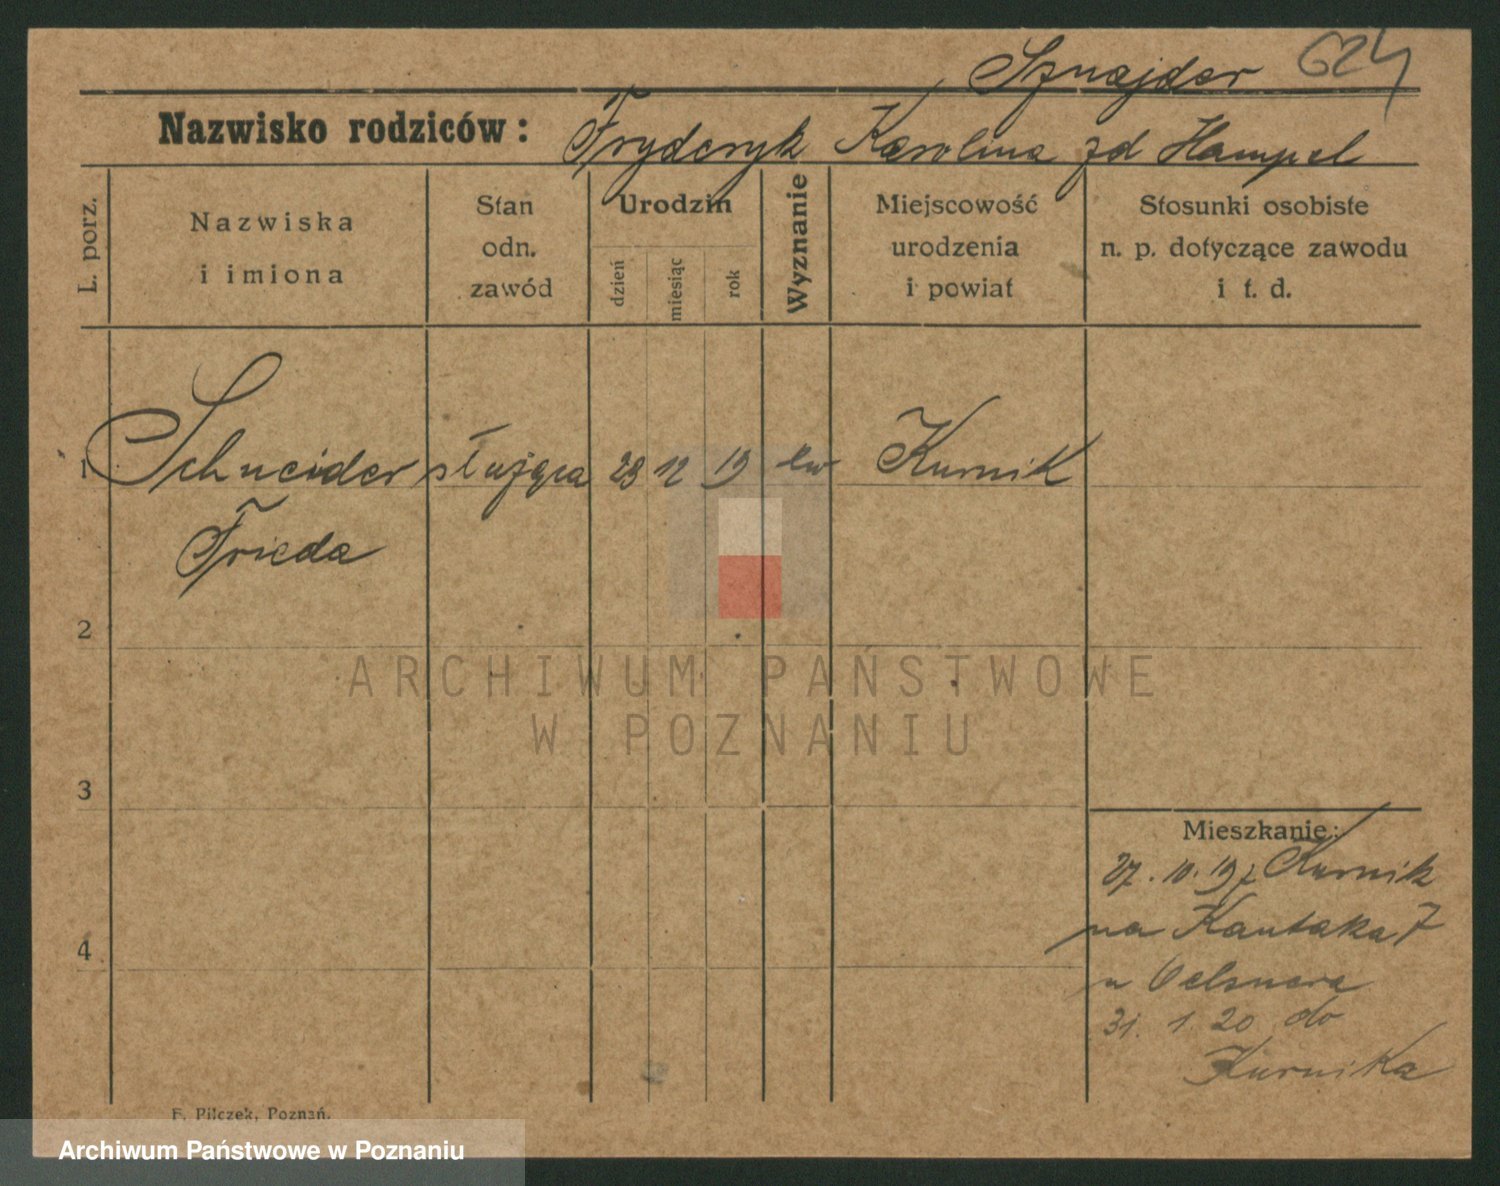 Sznajder 624
Nazwisko rodziców: Fryderyk Karolina zd Hampel
L. porz.
Nazwiska
i imiona
Stan
odn.
zawód
Urodzin
dzień
miesiąc
rok
Wyznanie
Miejscowość
urodzenia
i powiat
Stosunki osobiste
n. p. dotyczące zawodu
i t. d.
1 Schneider służąca 23 12 19 ew Kurnik
Frieda
2
3
4
Mieszkanie:
27. 10. 19 z Kurnik
na Kantaka 7
u Oelsnera
31. 1. 20 do
Kurnika
F. Pilczek, Poznań.
ARCHIWUM PAŃSTWOWE
W POZNANIU
Archiwum Państwowe w Poznaniu